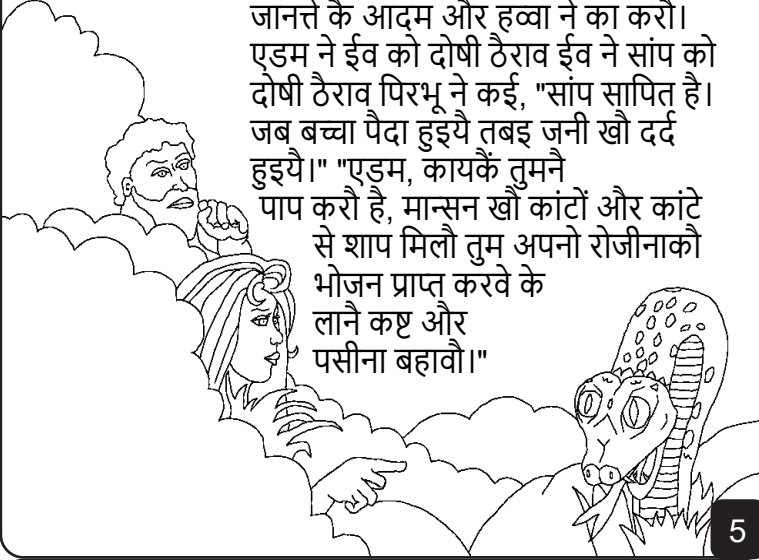 जानत्ते कै आदम और हव्वा ने का करौ।
एडम ने ईव को दोषी ठैराव ईव ने सांप को
दोषी ठैराव पिरभू ने कई, "सांप सापित है।
जब बच्चा पैदा हुइयै तबइ जनी खौ दर्द
हुइयै।" "एडम, कायकैं तुमनै
पाप करौ है, मान्सन खौ कांटों और कांटे
से शाप मिलौ तुम अपनो रोजीनाकौ
भोजन प्राप्त करवे के
लानै कष्ट और
पसीना बहावौ।"
5